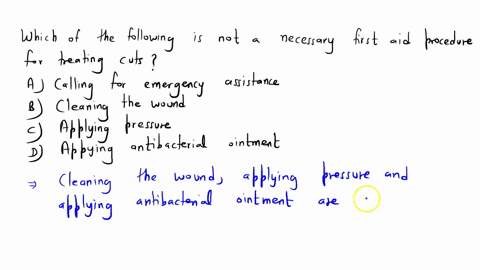 Which of the following is not a necessary first aid procedure
for treating cuts?
A) Calling for emergency assistance
B) Cleaning the wound
C) Applying pressure
D) Appying antibacterial ointment
⇒ Cleaning the wound, applying pressure and
applying antibacterial ointment are